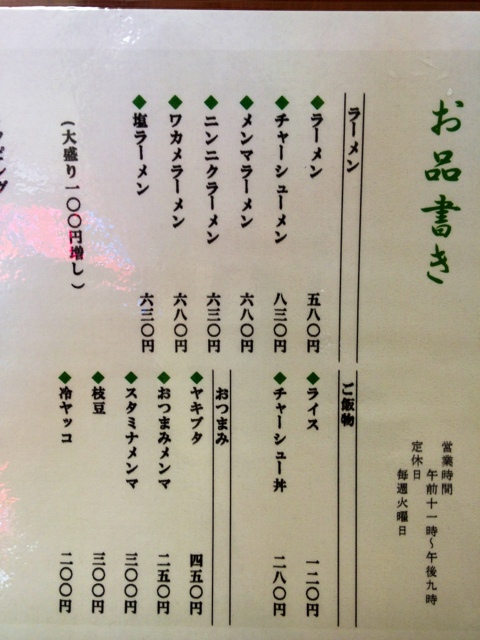 お品書き
営業時間
午前十一時～午後九時
定休日
毎週火曜日
ラーメン
◆ラーメン 五八〇円
◆チャーシューメン 八三〇円
◆メンマラーメン 六八〇円
◆ニンニクラーメン 六三〇円
◆ワカメラーメン 六八〇円
◆塩ラーメン 六三〇円
（大盛り一〇〇円増し）
ご飯物
◆ライス 一二〇円
◆チャーシュー丼 二八〇円
おつまみ
◆ヤキブタ 四五〇円
◆おつまみメンマ 二五〇円
◆スタミナメンマ 三〇〇円
◆枝豆 三〇〇円
◆冷ヤッコ 二〇〇円